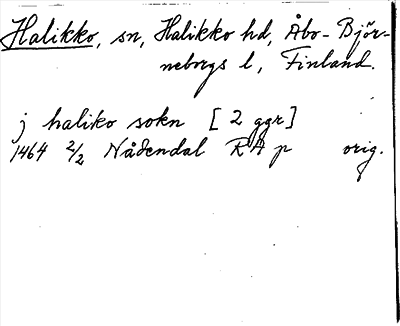 Halikko, sn, Halikko hd, Åbo-Björ-
neborgs l, Finland.
j haliko sokn [2 ggr]
1464 2/2 Nådendal RA p orig.